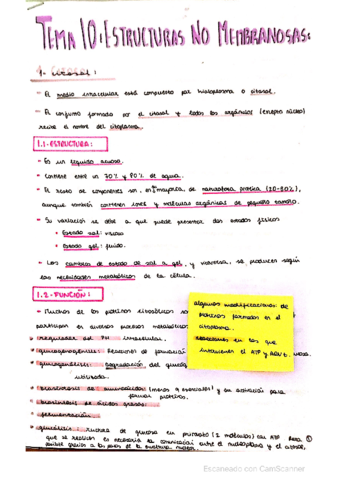 TEMA 10: ESTRUCTURAS NO MEMBRANOSAS:
1. Citosol:
- El medio intracelular está compuesto por hialoplasma o citosol.
- El conjunto formado por el citosol y todos los orgánulos (excepto núcleo)
recibe el nombre de citoplasma.
1.1-ESTRUCTURA:
- Es un líquido acuoso.
- Contiene entre un 70% y 80% de agua.
- El resto de componentes son, en su mayoría, de naturaleza proteica (20-30%),
aunque también contiene iones y moléculas orgánicas de pequeño tamaño.
- Su variación se debe a que puede presentar dos estados físicos
• Estado sol:
• Estado gel: fluido.
- Los cambios de estado de sol a gel, y viceversa, se producen según
las necesidades metabólicas de la célula.
1.2-FUNCIÓN:
- Muchas de las proteínas citosólicas
participan en diversos procesos metabólicos
- regulador del PH intracelular.
- glucogenogénesis: Reacciones de formación
- glucogenólisis: degradación del
utilizado.
- biosíntesis de aminoácidos (menos 9 esenciales) y su activación para
formar proteínas.
- biosíntesis de ácidos grasos.
- fermentación.
- glucólisis: de glucosa en piruvato (2 moléculas) con ATP Para ①
que se realicen es necesaria la comunicación entre el nucleoplasma y el citosol,
posible gracias a los poros de la
algunas modificaciones de
proteínas formadas en el
citoplasma.
reacciones en las que
intervienen el ATP y
Escaneado con CamScanner